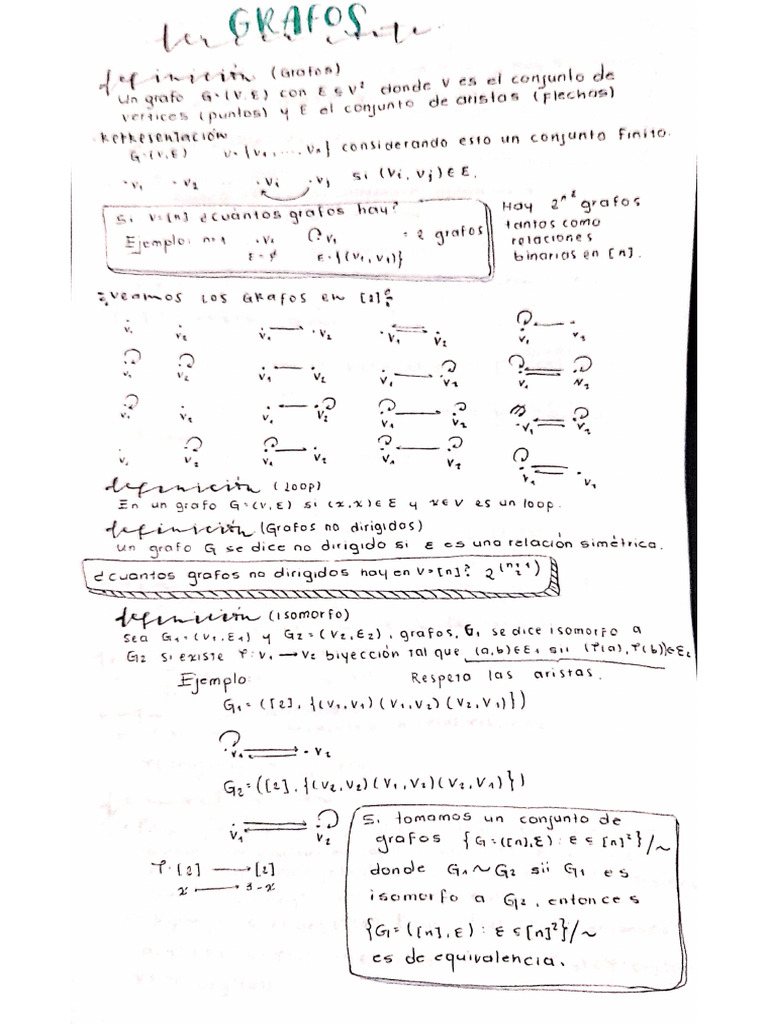 GRAFOS
definición (Grafos)
Un grafo G=(V,E) con E⊆V² donde V es el conjunto de
vertices (puntos) y E el conjunto de aristas (flechas)
Representación
G=(V,E) V={V₁,...,Vₙ} considerando esto un conjunto finito.
·v₁ ·v₂ ·vᵢ ·vⱼ si (Vᵢ, Vⱼ)∈E.
Si V=[n] ¿cuántos grafos hay?
Ejemplo: n=1 ·V₁ ·V₁ = 2 grafos
E=∅ E={(V₁,V₁)}
Hay 2^n² grafos
tantos como
relaciones
binarias en [n].
Veamos los Grafos en [2]
V₁ V₂ V₁ V₂ V₁ V₂ V₁ V₂
V₁ V₂ V₁ V₂ V₁ V₂ V₁ V₂
V₁ V₂ V₁ V₂ V₁ V₂ V₁ V₂
V₁ V₂ V₁ V₂ V₁ V₂ V₂
definición (Loop)
En un grafo G=(V,E) si (x,x)∈E y x∈V es un loop.
definición (Grafos no dirigidos)
Un grafo G se dice no dirigido si E es una relación simétrica.
¿cuantos grafos no dirigidos hay en V=[n]? 2^(n+1 2)
definición (isomorfo)
Sea G₁=(V₁,E₁) y G₂=(V₂,E₂), grafos, G₁ se dice isomorfo a
G₂ si existe φ: V₁ → V₂ biyección tal que (a,b)∈E₁ sii (φ(a),φ(b))∈E₂
Ejemplo: Respeta las aristas.
G₁=([2],{(V₁,V₁)(V₁,V₂)(V₂,V₁)})
V₁ ·V₂
G₂=([2],{(V₂,V₂)(V₁,V₂)(V₂,V₁)})
V₁ V₂
φ:[2] → [2]
x ↦ 3-x
Si tomamos un conjunto de
grafos {G=([n],E): E⊆[n]²}/~
donde G₁~G₂ sii G₁ es
isomorfo a G₂, entonces
{G=([n],E): E⊆[n]²}/~
es de equivalencia.